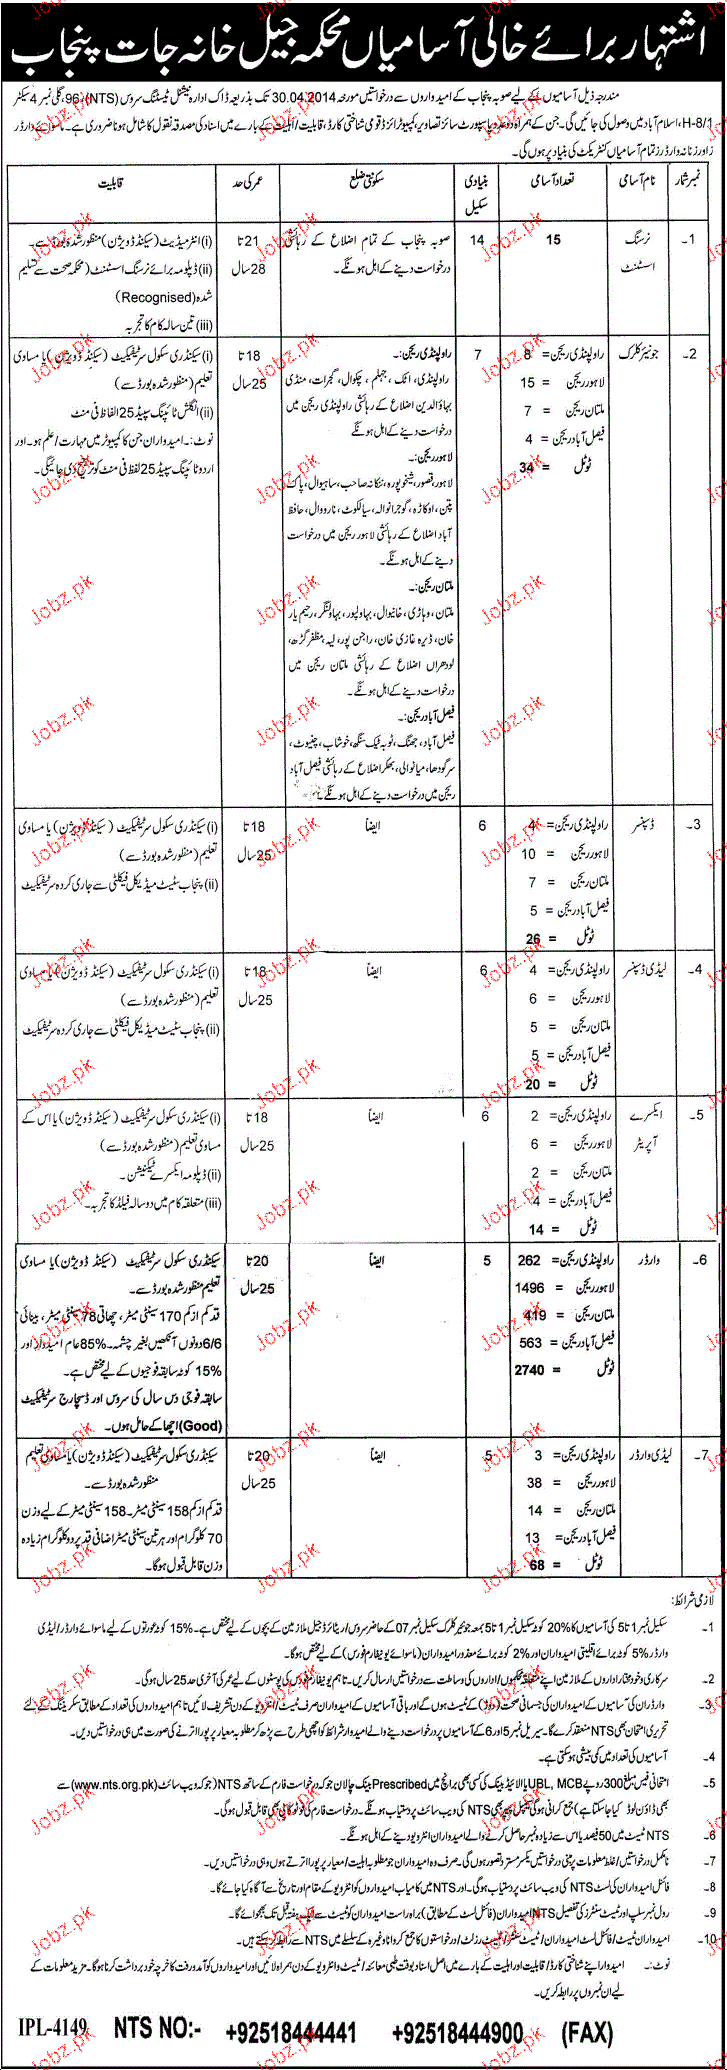 اشتہار برائے خالی آسامیاں محکمہ جیل خانہ جات پنجاب
مندرجہ ذیل آسامیوں کے لیے صوبہ پنجاب کے امیدواروں سے درخواستیں مورخہ 30.04.2014 تک بذریعہ ڈاک ادارہ نیشنل ٹیسٹنگ سروس (NTS)، 96، گلی نمبر 4 سیکٹر
H-8/1، اسلام آباد میں وصول کی جائیں گی۔ جن کے ہمراہ دو عدد پاسپورٹ سائز تصاویر، کمپیوٹرائزڈ قومی شناختی کارڈ، قابلیت/اہلیت کے بارے میں اسناد کی مصدقہ نقول کا شامل ہونا ضروری ہے۔ ماسوائے وارڈر
ز اور زنانہ وارڈرز تمام آسامیاں کنٹریکٹ کی بنیاد پر ہوں گی۔
نمبر شمار نام آسامی تعداد آسامی بنیادی سکیل سکونتی ضلع عمر کی حد قابلیت
1۔ نرسنگ اسسٹنٹ 15 14
صوبہ پنجاب کے تمام اضلاع کے رہائشی
درخواست دینے کے اہل ہونگے۔
21 تا
28 سال
(i) انٹرمیڈیٹ (سیکنڈ ڈویژن) منظور شدہ بورڈ سے۔
(ii) ڈپلومہ برائے نرسنگ اسسٹنٹ (محکمہ صحت سے تسلیم
شدہ (Recognised)
(iii) تین سالہ کام کا تجربہ
2۔ جونیئر کلرک
راولپنڈی ریجن = 8
لاہور ریجن = 15
ملتان ریجن = 7
فیصل آباد ریجن = 4
ٹوٹل = 34
7
راولپنڈی ریجن:۔
راولپنڈی، اٹک، جہلم، چکوال، گجرات، منڈی
بہاؤالدین اضلاع کے رہائشی راولپنڈی ریجن میں
درخواست دینے کے اہل ہونگے
لاہور ریجن:۔
لاہور، قصور، شیخوپورہ، ننکانہ صاحب، ساہیوال، پاک
پتن، اوکاڑہ، گوجرانوالہ، سیالکوٹ، نارووال، حافظ
آباد اضلاع کے رہائشی لاہور ریجن میں درخواست
دینے کے اہل ہونگے۔
ملتان ریجن:۔
ملتان، وہاڑی، خانیوال، بہاولپور، بہاولنگر، رحیم یار
خان، ڈیرہ غازی خان، راجن پور، لیہ، مظفر گڑھ،
لودھراں اضلاع کے رہائشی ملتان ریجن میں
درخواست دینے کے اہل ہونگے۔
فیصل آباد ریجن:۔
فیصل آباد، جھنگ، ٹوبہ ٹیک سنگھ، خوشاب، چنیوٹ،
سرگودھا، میانوالی، بھکر اضلاع کے رہائشی فیصل آباد
ریجن میں درخواست دینے کے اہل ہونگے۔
18 تا
25 سال
(i) سیکنڈری سکول سرٹیفکیٹ (سیکنڈ ڈویژن) یا مساوی
تعلیم (منظور شدہ بورڈ سے)
(ii) انگلش ٹائپنگ سپیڈ 25 الفاظ فی منٹ
نوٹ:۔ امیدواران جن کا کمپیوٹر میں مہارت/علم ہو۔ اور
اردو ٹائپنگ سپیڈ 25 لفظ فی منٹ کو ترجیح دی جائیگی۔
3۔ ڈسپنسر
راولپنڈی ریجن = 4
لاہور ریجن = 10
ملتان ریجن = 7
فیصل آباد ریجن = 5
ٹوٹل = 26
6
ایضاً
18 تا
25 سال
(i) سیکنڈری سکول سرٹیفکیٹ (سیکنڈ ڈویژن) یا مساوی
تعلیم (منظور شدہ بورڈ سے)
(ii) پنجاب سٹیٹ میڈیکل فیکلٹی سے جاری کردہ سرٹیفکیٹ
4۔ لیڈی ڈسپنسر
راولپنڈی ریجن = 4
لاہور ریجن = 6
ملتان ریجن = 5
فیصل آباد ریجن = 5
ٹوٹل = 20
6
ایضاً
18 تا
25 سال
(i) سیکنڈری سکول سرٹیفکیٹ (سیکنڈ ڈویژن) یا مساوی
تعلیم (منظور شدہ بورڈ سے)
(ii) پنجاب سٹیٹ میڈیکل فیکلٹی سے جاری کردہ سرٹیفکیٹ
5۔ ایکسرے آپریٹر
راولپنڈی ریجن = 2
لاہور ریجن = 6
ملتان ریجن = 2
فیصل آباد ریجن = 4
ٹوٹل = 14
6
ایضاً
18 تا
25 سال
(i) سیکنڈری سکول سرٹیفکیٹ (سیکنڈ ڈویژن) یا اس کے
مساوی تعلیم (منظور شدہ بورڈ سے)
(ii) ڈپلومہ ایکسرے ٹیکنیشن۔
(iii) متعلقہ کام میں دو سالہ فیلڈ کا تجربہ۔
6۔ وارڈر
راولپنڈی ریجن = 262
لاہور ریجن = 1496
ملتان ریجن = 419
فیصل آباد ریجن = 563
ٹوٹل = 2740
5
ایضاً
20 تا
25 سال
سیکنڈری سکول سرٹیفکیٹ (سیکنڈ ڈویژن) یا مساوی
تعلیم منظور شدہ بورڈ سے۔
قد کم از کم 170 سینٹی میٹر، چھاتی 78 سینٹی میٹر، بینائی
6/6 دونوں آنکھیں بغیر چشمہ۔ 85% عام امیدوار اور
15% کوٹہ سابقہ فوجیوں کے لیے مختص ہے۔
سابقہ فوجی دس سال کی سروس اور ڈسچارج سرٹیفکیٹ
(Good) اچھا کے حامل ہوں۔
7۔ لیڈی وارڈر
راولپنڈی ریجن = 3
لاہور ریجن = 38
ملتان ریجن = 14
فیصل آباد ریجن = 13
ٹوٹل = 68
5
ایضاً
20 تا
25 سال
سیکنڈری سکول سرٹیفکیٹ (سیکنڈ ڈویژن) یا مساوی تعلیم
منظور شدہ بورڈ سے۔
قد کم از کم 158 سینٹی میٹر۔ 158 سینٹی میٹر کے لیے وزن
70 کلوگرام اور ہر تین سینٹی میٹر اضافی قد پر دو کلوگرام زیادہ
وزن قابل قبول ہوگا۔
لازمی شرائط:۔
1۔ سکیل نمبر 1 تا 5 کی آسامیوں کا 20% کوٹہ سکیل نمبر 1 تا 5 بمعہ جونیئر کلرک سکیل نمبر 07 کے حاضر سروس/ریٹائرڈ جیل ملازمین کے بچوں کے لیے مختص ہے۔ 15% کوٹہ عورتوں کے لیے ماسوائے وارڈر/لیڈی
وارڈر، 5% کوٹہ برائے اقلیتی امیدواران اور 2% کوٹہ برائے معذور امیدواران (ماسوائے یونیفارم فورس) کے لیے مختص ہوگا۔
2۔ سرکاری و خود مختار اداروں کے ملازمین اپنے متعلقہ محکموں/اداروں کی وساطت سے درخواستیں ارسال کریں۔ تاہم یونیفارم فورس کی پوسٹوں کے لیے عمر کی آخری حد 25 سال ہوگی۔
3۔ وارڈران کی آسامیوں کے امیدواران کی جسمانی صحت (دوڑ) کے ٹیسٹ ہوں گے اور باقی آسامیوں کے امیدواران صرف ٹیسٹ/انٹرویو کے دن تشریف لائیں تاہم امیدواروں کی تعداد کے مطابق سکریننگ کے لئے
تحریری امتحان بھی NTS منعقد کرے گا۔ سیریل نمبر 5 اور 6 کے آسامیوں پر درخواست دینے والے امیدوار شرائط کو اچھی طرح سے پڑھ کر مطلوبہ معیار پر پورا اترنے کی صورت میں ہی درخواستیں دیں۔
4۔ آسامیوں کی تعداد میں کمی بیشی ہو سکتی ہے۔
5۔ امتحانی فیس مبلغ 300 روپے UBL، MCB یا الائیڈ بینک کی کسی بھی برانچ میں Prescribed بینک چالان جو کہ درخواست فارم کے ساتھ NTS (جو کہ ویب سائٹ (www.nts.org.pk) سے
بھی ڈاؤن لوڈ کیا جا سکتا ہے) جمع کرانی ہوگی۔ سیمپل پیپر بھی NTS کی ویب سائٹ پر دستیاب ہونگے۔ درخواست فارم کی فوٹو کاپی بھی قابل قبول ہوگی۔
6۔ NTS ٹیسٹ میں 50 فیصد یا اس سے زیادہ نمبر حاصل کرنے والے امیدواران انٹرویو دینے کے اہل ہونگے۔
7۔ نامکمل درخواستیں/غلط معلومات پر مبنی درخواستیں یکسر مسترد تصور ہوں گی۔ صرف وہ امیدواران جو مطلوبہ اہلیت/معیار پر پورا اترتے ہوں وہی درخواستیں دیں۔
8۔ فائنل امیدواران کی لسٹ NTS کی ویب سائٹ پر دستیاب ہوگی۔ اور NTS میں کامیاب امیدواروں کو انٹرویو کے مقام اور تاریخ سے آگاہ کیا جائے گا۔
9۔ رول نمبر سلپ اور ٹیسٹ سنٹرز کی تفصیل NTS امیدواران (فائنل لسٹ کے مطابق) براہ راست امیدواران کو ٹیسٹ سے ایک ہفتہ قبل تک بھجوائے گا۔
10۔ امیدواران ٹیسٹ/فائنل لسٹ امیدواران/ٹیسٹ سنٹر/ٹیسٹ رزلٹ/درخواستوں کا جمع کروانا وغیرہ کے سلسلے میں NTS سے رابطہ کر سکتے ہیں۔
نوٹ:۔ امیدوار اپنے شناختی کارڈ/قابلیت اور اہلیت کے بارے میں اصل اسناد بوقت طبی معائنہ/ٹیسٹ و انٹرویو کے دن ہمراہ لائیں اور امیدواروں کو آمدورفت کا خرچہ خود برداشت کرنا ہوگا۔ مزید معلومات کے
لیے ان نمبروں پر رابطہ کریں۔
IPL-4149 NTS NO:- +92518444441 +92518444900 (FAX)